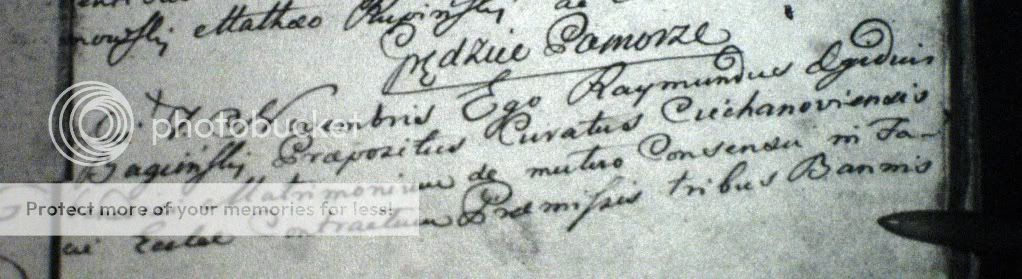 Matheo Rupinski de
Prędzice Pamorze
Novembris Ego Raymundus Egidius
Łaguiński Præpozitus Curatus Ciechanoviensis
Matrimonium de mutuo Consensu in Fa-
cie Eccłae Contractum Præmissis tribus Bannis
photobucket
Protect more of your memories for less!